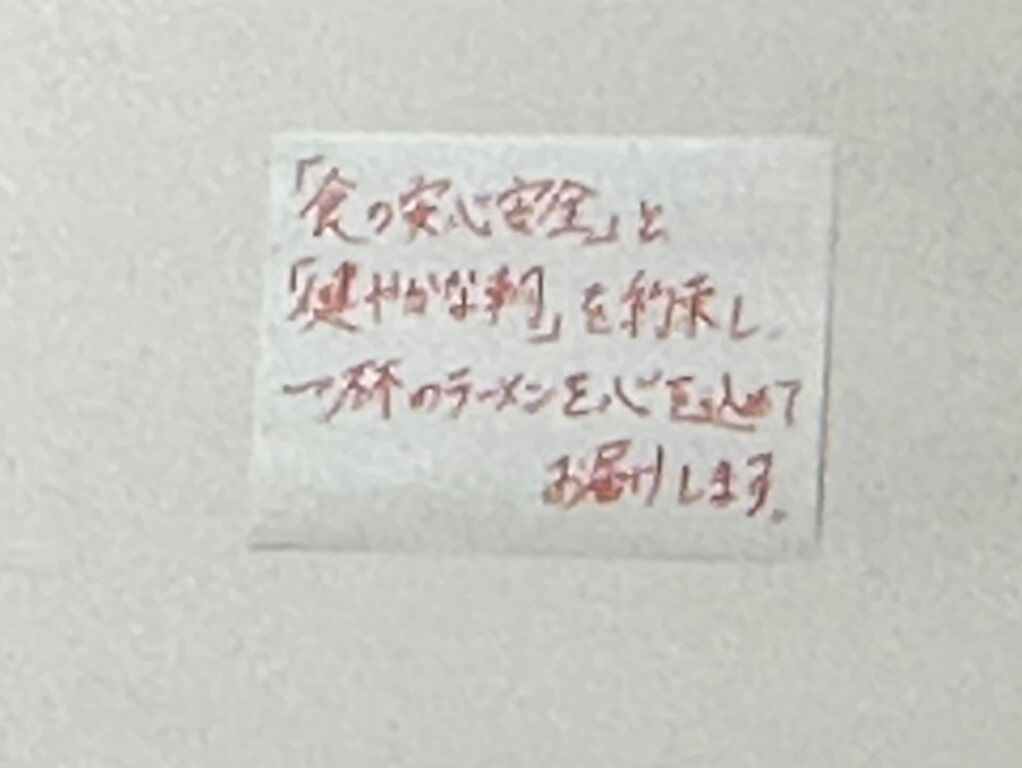 「食の安心安全」と
「健やかな」を約束し
一杯のラーメンを心を込めて
お届けします。